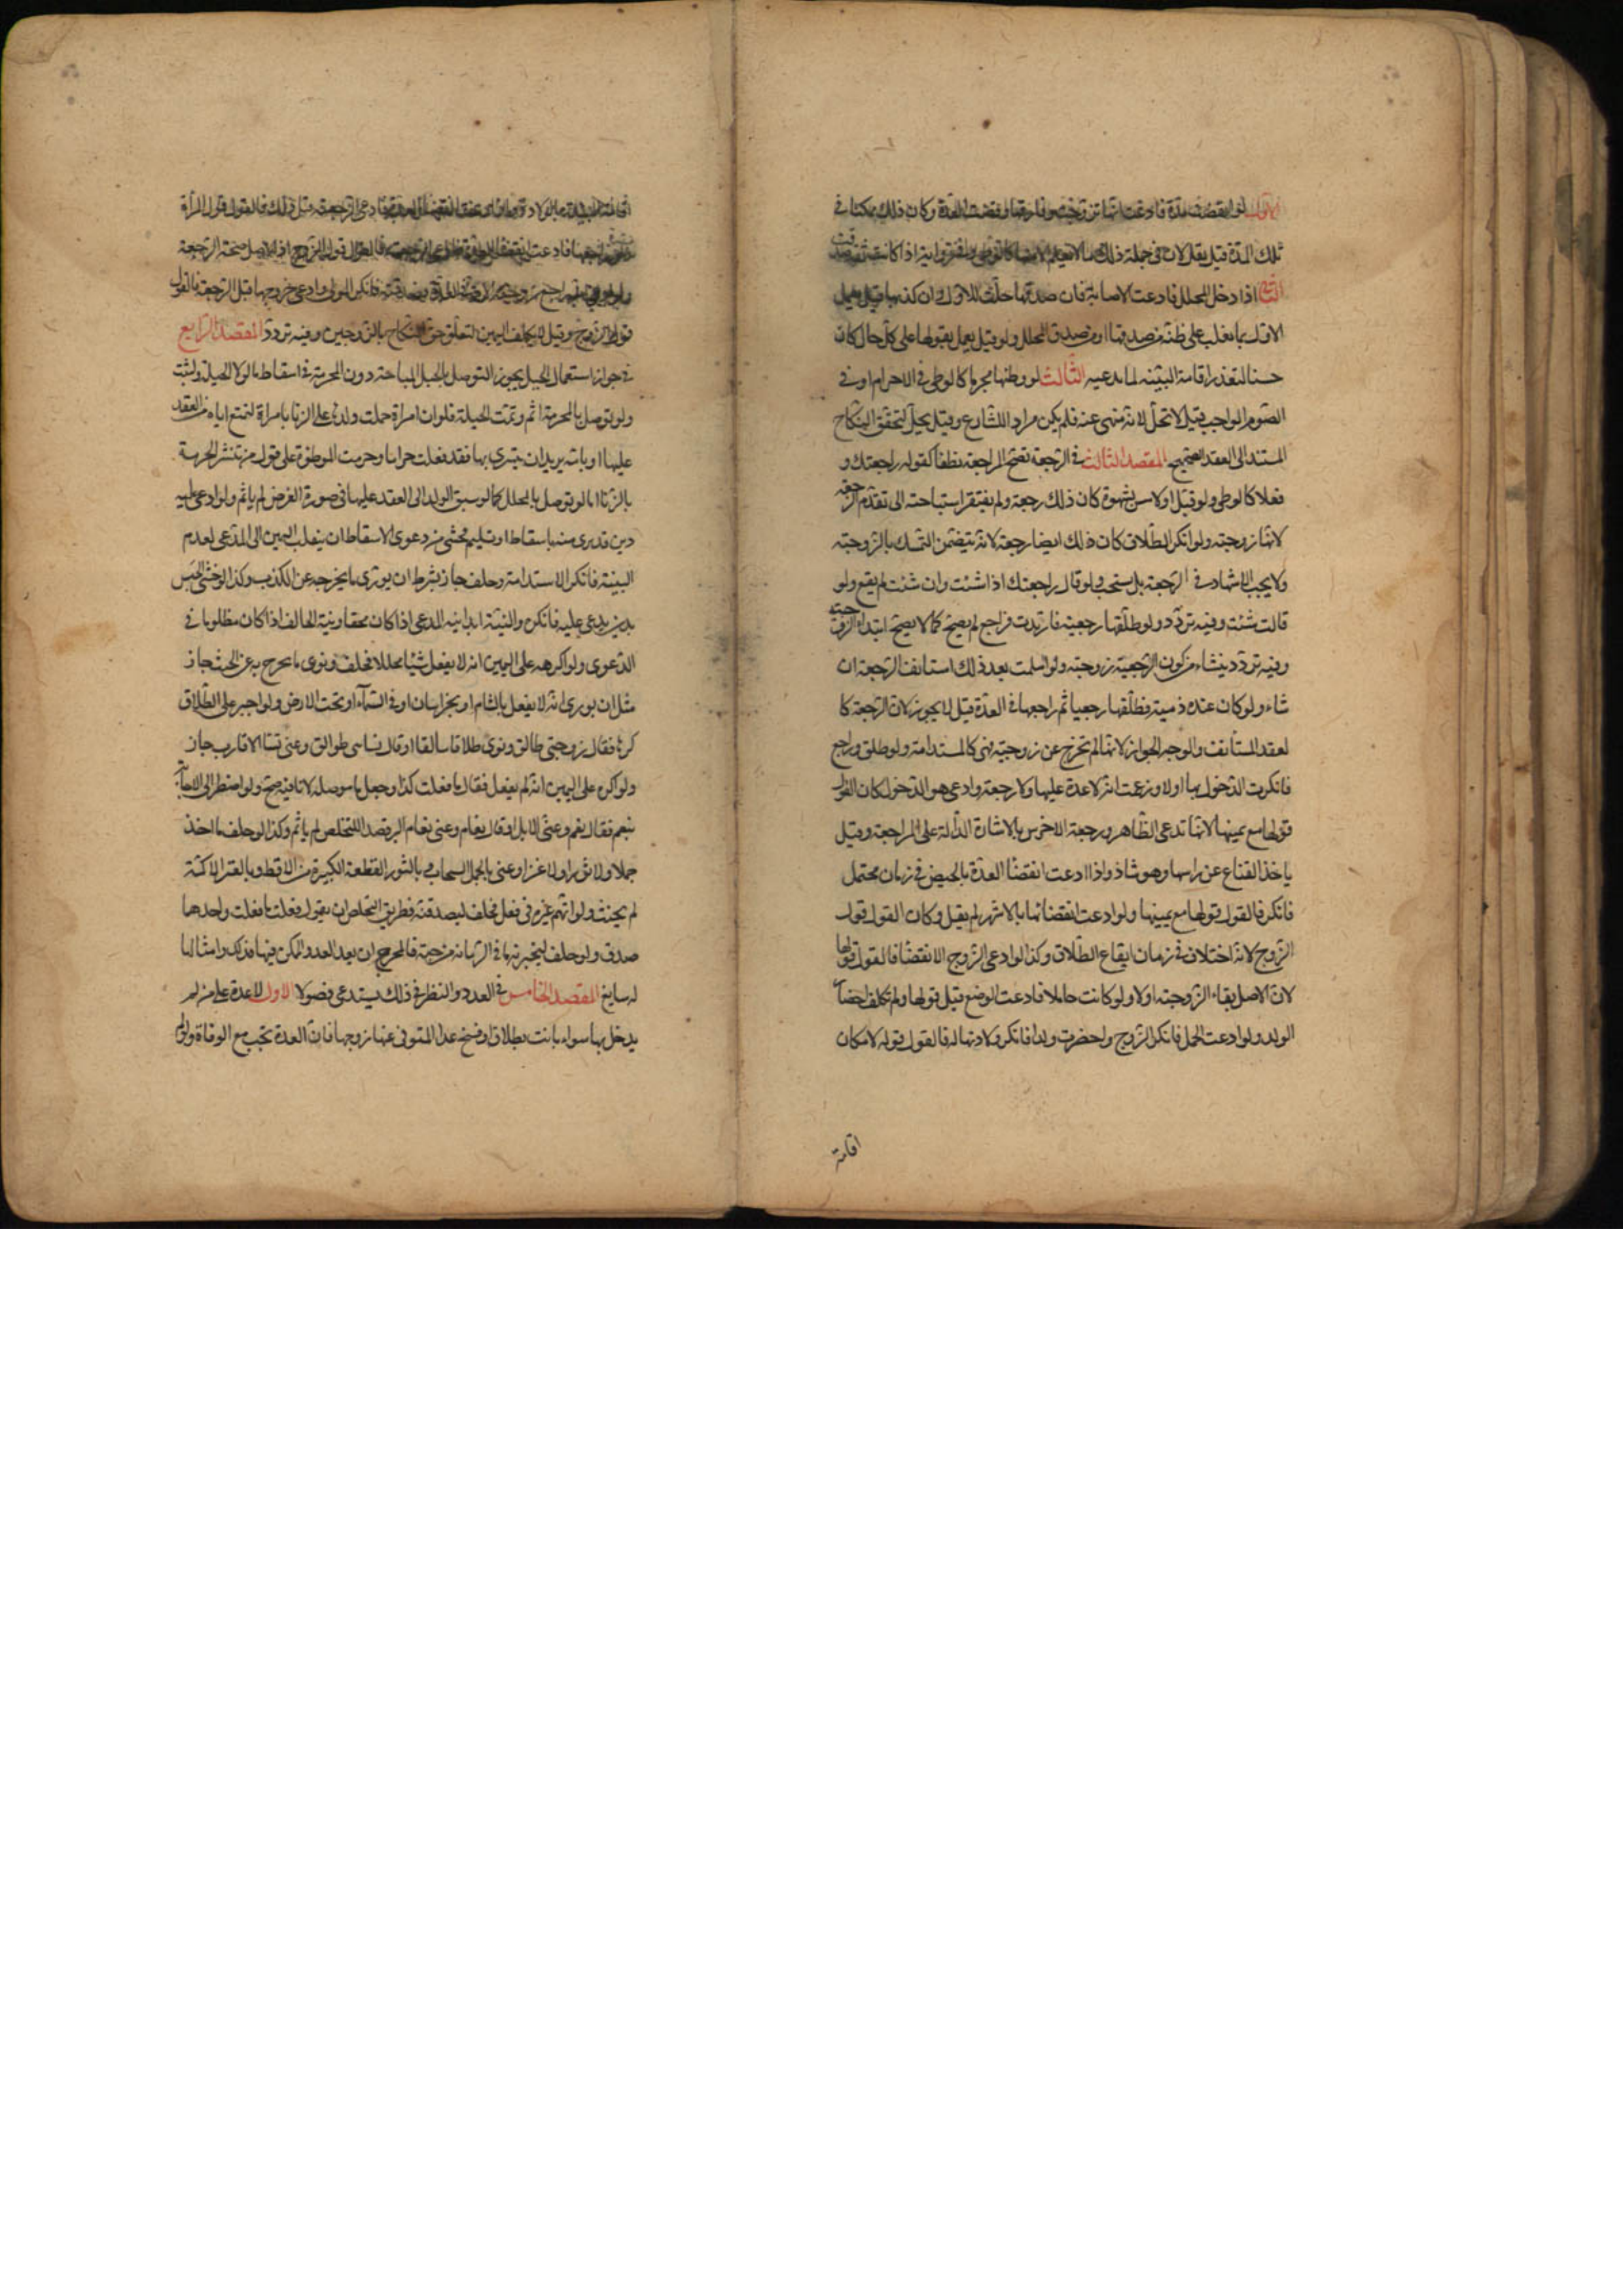 الاول لو انقضت مدة فادعت انها تزوجت وفارقها وقضت العدة وكان ذلك ممكنا في
تلك المدة قيل يقبل لان في جملة ذلك ما لا يعلم الا منها كالوطي وفي رواية اذا كانت ثقة صدقت
الثاني اذا دخل المحلل فادعت الاصابة فان صدقها حلت للاول وان كذبها قيل يعمل
الاول بما يغلب على ظنه من صدقها او من صدق المحلل ولو قيل يعمل بقولها على كل حال كان
حسنا لتعذر اقامة البينة لما يدعيه الثالث لو وطئها محرما كالوطي في الاحرام او في
الصوم الواجب قيل لا تحل لانه منهى عنه فلم يكن مراد اللشارع وقيل يحل لتحقق النكاح
المستند الى العقد الصحيح المقصد الثالث في الرجعة تصح المراجعة نطقا كقوله راجعتك و
فعلا كالوطي ولو قبل او لامس بشهوة كان ذلك رجعة ولم يفتقر استباحته الى تقدم الرجعة
لانها زوجته ولو انكر الطلاق كان ذلك ايضا رجعة لانه يتضمن التمسك بالزوجية
ولا يجب الاشهاد في الرجعة بل يستحب ولو قال راجعتك اذا شئت وان شئت لم يقع ولو
قالت شئت وفيه تردد ولو طلقها رجعية فارتدت فراجع لم يصح كما لا يصح ابتداء الزوجية
وفيه تردد ينشاء من كون الرجعية زوجته ولو اسلمت بعد ذلك استانف الرجعة ان
شاء ولو كان عنده ذمية فطلقها رجعيا ثم راجعها في العدة قيل لا يجوز لان الرجعة كا
لعقد المستانف والوجه الجواز لانها لم تخرج عن زوجيته فهي كالمستدامة ولو طلق وراجع
فانكرت الدخول بها اولا وزعمت انه لا عدة عليها ولا رجعة وادعى هو الدخول كان القول
قولها مع يمينها لانها تدعى الظاهر ورجعة الاخرس بالاشارة الدالة على المراجعة وقيل
ياخذ القناع عن راسها وهو شاذ واذا ادعت انقضا العدة بالحيض في زمان محتمل
فانكر فالقول قولها مع يمينها ولو ادعت انقضائها بالاشهر لم يقبل وكان القول قول
الزوج لانه اختلاف في زمان ايقاع الطلاق وكذا لو ادعى الزوج الانقضا فالقول قولها
لان الاصل بقاء الزوجية اولا ولو كانت حاملا فادعت الوضع قيل قولها ولم تكلف احضار
الولد ولو ادعت الحمل فانكر الزوج واحضرت ولدا فانكر ولادتها له فالقول قوله لامكان
اقامة
اقامة البينة بالولادة واذا ادعت انقضاء العدة فادعى الرجعة قبل ذلك فالقول قول المرأة
ولو راجعها فادعت انقضاء العدة قبل الرجعة فالقول قول الزوج اذ الاصل صحة الرجعة
ولو ادعى انه راجع زوجته الامة في العدة فصدقته فانكر المولى وادعى خروجها قبل الرجعة فالقول
قول الزوج وقيل لا يكلف اليمين لتعلق حق النكاح بالزوجين وفيه تردد المقصد الرابع
في جواز استعمال الحيل يجوز التوصل بالحيل المباحة دون المحرمة في اسقاط ما لولا الحيلة لثبت
ولو توصل بالمحرمة اثم وتمت الحيلة فلو ان امراة حملت ولدها على الزنا بامراة لتمنع اباه من العقد
عليها او بامة يريد ان يتسرى بها فقد فعلت حراما وحرمت الموطؤة على قول من ينشر الحرمة
بالزنا اما لو توصل بالمحلل كما لو سبق الولد الى العقد عليها في صورة الفرض لم ياثم ولو ادعى عليه
دين قد برى منه باسقاط او تسليم فخشى من دعوى الاسقاط ان ينقلب اليمين الى المدعى لعدم
البينة فانكر الاستدامة وحلف جاز بشرط ان يورى ما يخرجه عن الكذب وكذا لو خشى الحبس
بدين يدعى عليه فانكره والنية ابدا نية المدعى اذا كان محقا ونية الحالف اذا كان مظلوما في
الدعوى ولو اكرهه على اليمين انه لا يفعل شيئا محللا فحلف ونوى ما يخرج به عن الحنث جاز
مثل ان يورى انه لا يفعل بالشام او بخراسان او في السماء او تحت الارض ولو اجبر على الطلاق
كرها فقال زوجتى طالق ونوى طلاقا سالفا او قال نساى طوالق وعنى نسا الاقارب جاز
ولو اكره على اليمين انه لم يفعل فقال ما فعلت كذا وجعل ما موصلة لا نافية صح ولو اضطر الى الاجابة
بنعم فقال نعم وعنى الابل او قال نعام وعنى نعام البر قصدا للتخلص لم ياثم وكذا لو حلف ما اخذ
جملا ولا ثورا ولا عنزا وعنى بالجمل السحاب وبالثور القطعة الكبيرة من الاقط وبالعنز الاكمة
لم يحنث ولو اتهم غيره في فعل فحلف ليصدقنه فطريق التخلص ان يقول فعلت ما فعلت واحدهما
صدق ولو حلف ليخبرنه بما في الرمانة من حبة فالمخرج ان يعد العدد الممكن فيها فذلك وامثالها
له سايغ المقصد الخامس في العدد والنظر في ذلك يستدعى فصولا الاول لا عدة على من لم
يدخل بها سواء بانت بطلاق او فسخ عدا المتوفى عنها زوجها فان العدة تجب مع الوفاة ولو لم